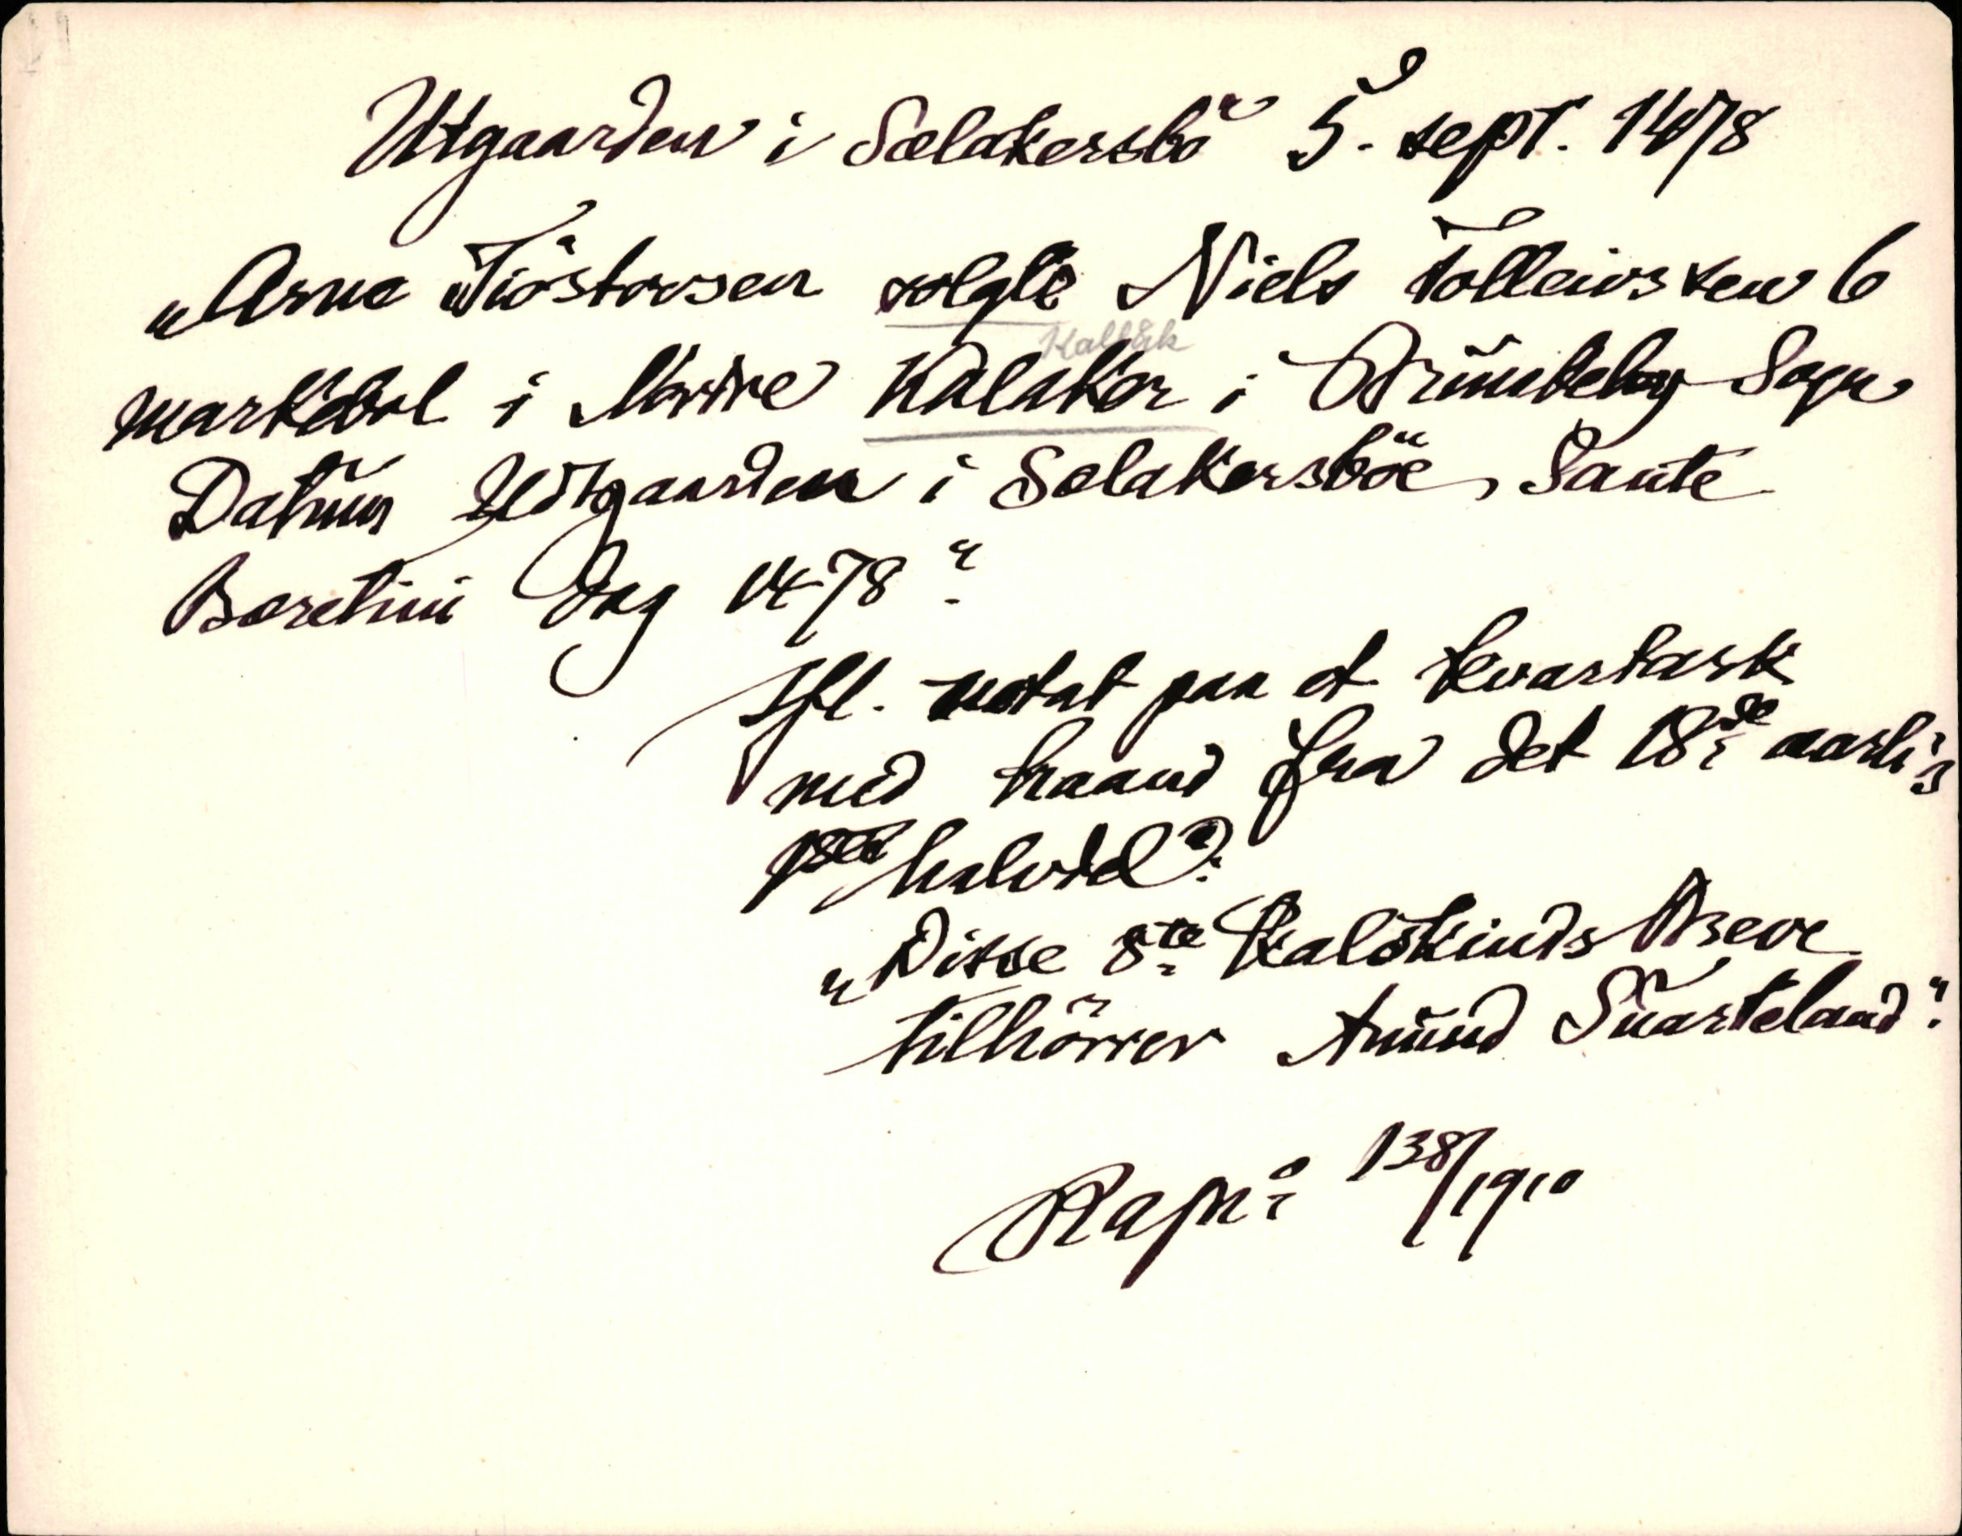 Utgaarden i Sælakersbö 5. sept. 1478
„Arne Tiöstovsen solgte Niels Tolleivssen 6
markebol i Nordre Kalaker i Drümbeby Sogn
Kallåk
Datum Udtgaarden i Sælakersböe, Sante
Boretini Dag 1478“.
Ifl. notat paa et kvartark
med haand fra det 18de aarh's
halvdel?
„Disse 8te Kalskinds Breve
tilhörrer Amund Suarteland“.
Rapn: 138/1910